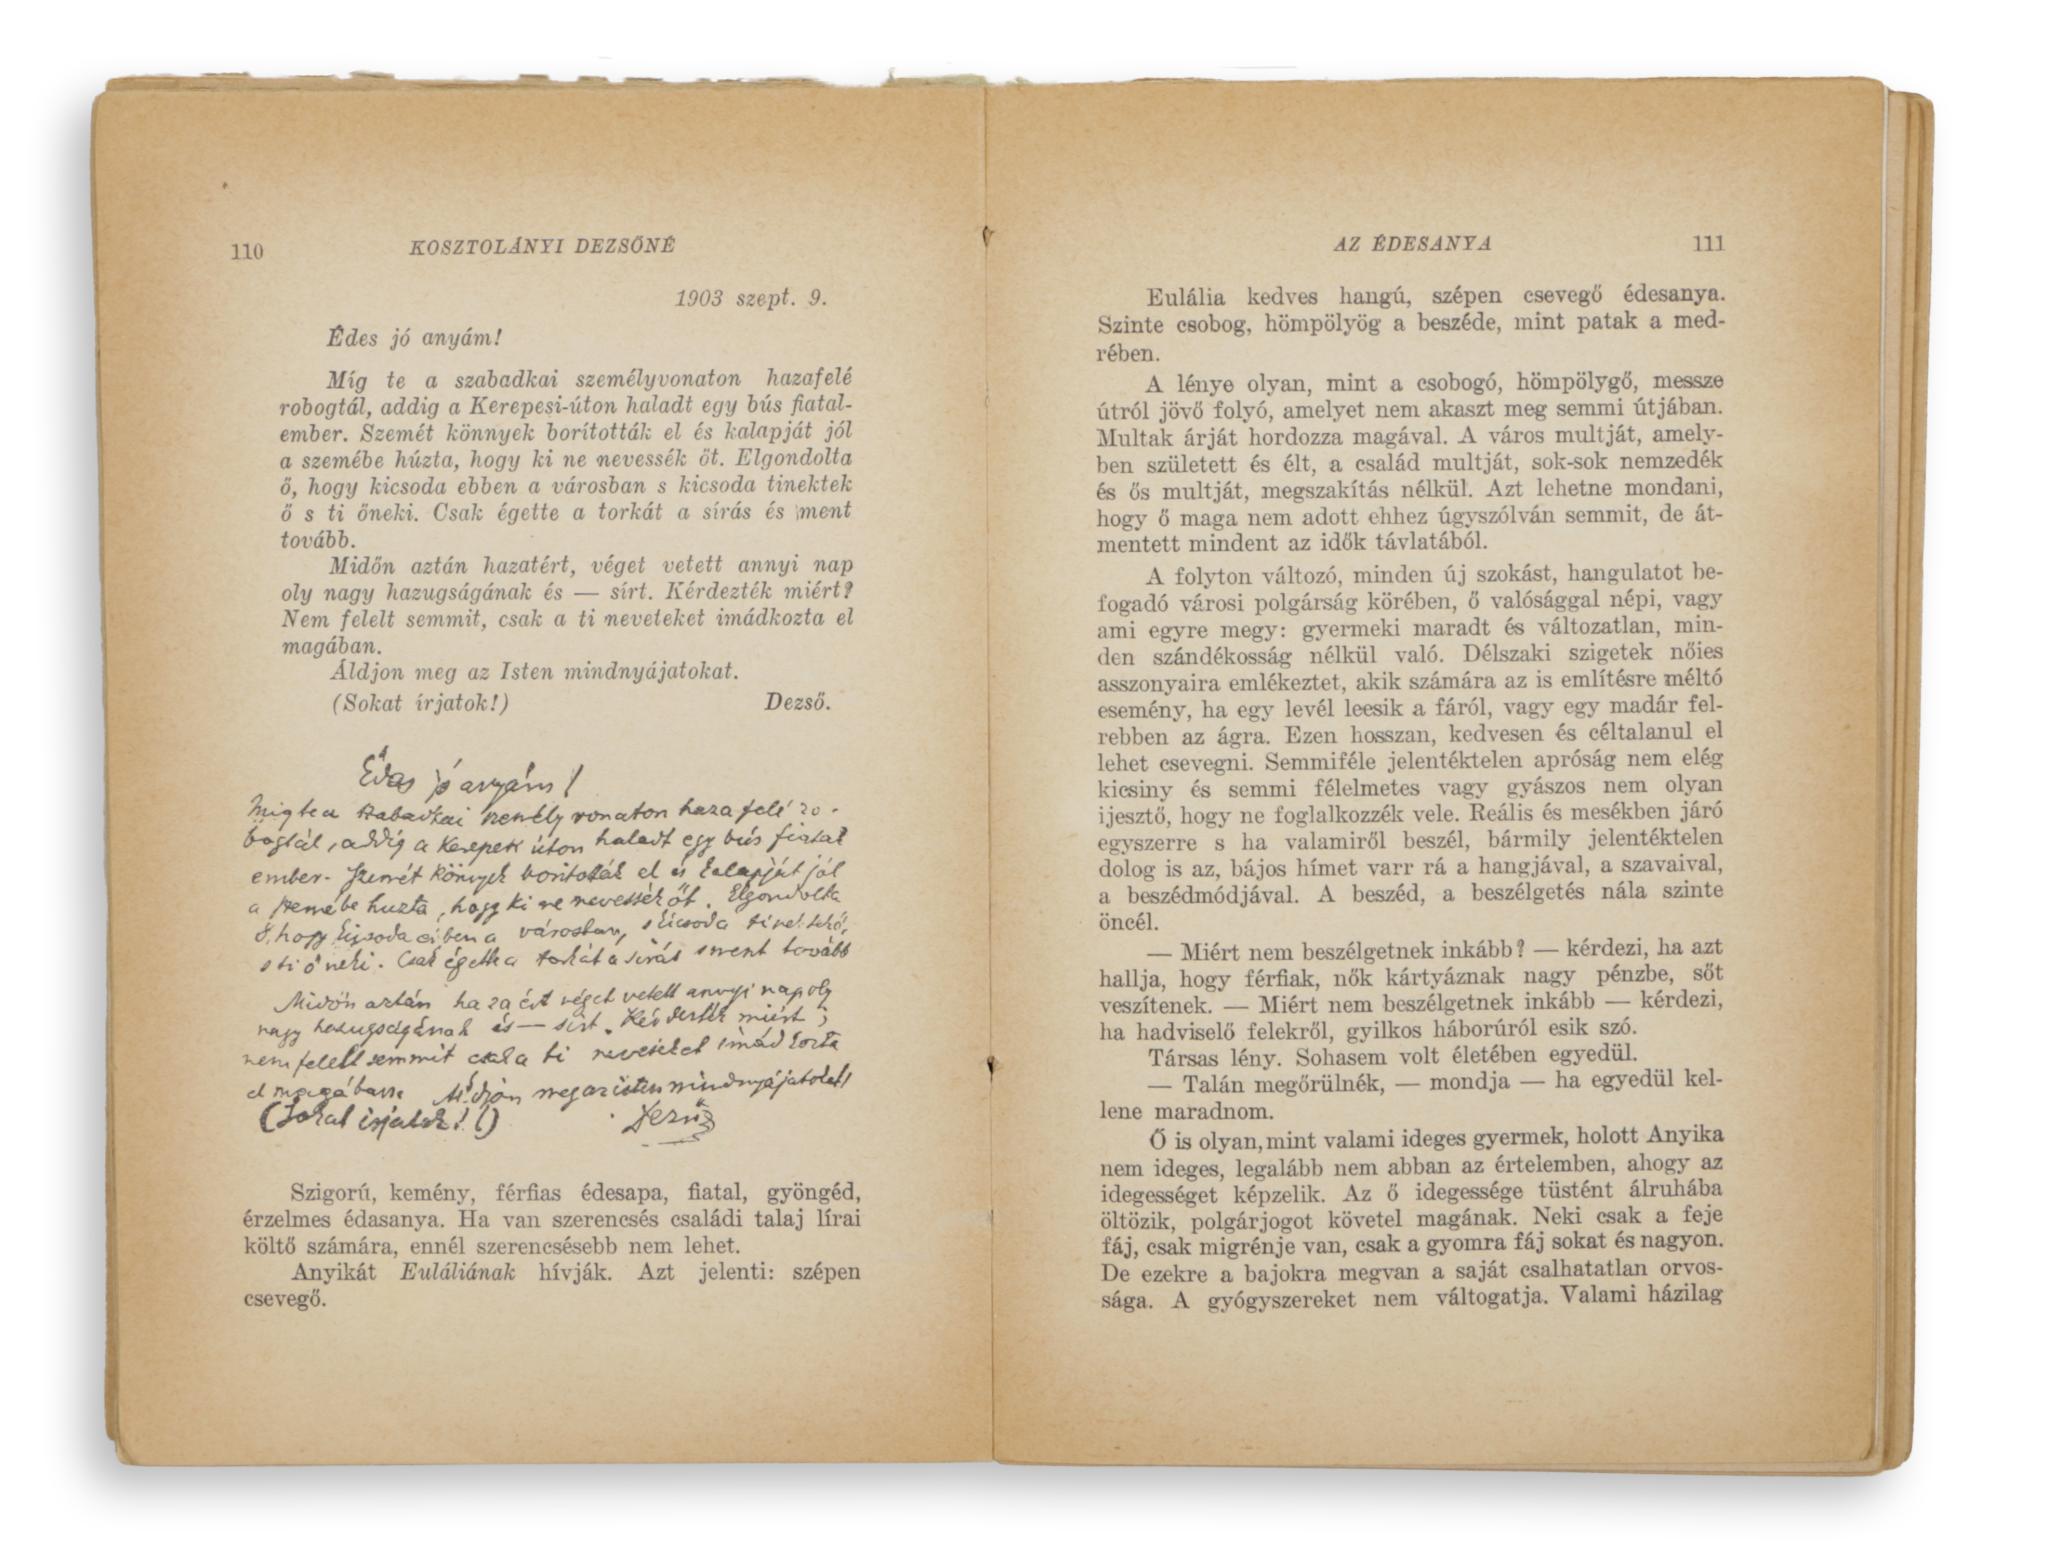 110 KOSZTOLÁNYI DEZSŐNÉ
1903 szept. 9.
Édes jó anyám!
Míg te a szabadkai személyvonaton hazafelé
robogtál, addig a Kerepesi-úton haladt egy bús fiatal-
ember. Szemét könnyek borították el és kalapját jól
a szemébe húzta, hogy ki ne nevessék őt. Elgondolta
ő, hogy kicsoda ebben a városban s kicsoda tinektek
ő s ti őneki. Csak égette a torkát a sírás és ment
tovább.
Midőn aztán hazatért, véget vetett annyi nap
oly nagy hazugságának és — sírt. Kérdezték miért?
Nem felelt semmit, csak a ti neveteket imádkozta el
magában.
Áldjon meg az Isten mindnyájatokat.
(Sokat írjatok!) Dezső.
Édes jó anyám!
Míg te a szabadkai személy vonaton haza felé ro-
bogtál, addig a Kerepesi úton haladt egy bús fiatal
ember. Szemét könnyek borították el és kalapját jól
a szemébe huzta, hogy ki ne nevessék őt. Elgondolta
ő, hogy kicsoda ebben a városban, s kicsoda tinektek ő,
s ti ő neki. Csak égette a torkát a sirás s ment tovább
Midőn aztán haza ért véget vetett annyi nap oly
nagy hazugságának és — sirt. Kérdezték miért;
nem felelt semmit csak a ti neveteket imádkozta
el magában. Áldjon meg az isten mindnyájatokat!
(Sokat irjatok!!) Dezső
Szigorú, kemény, férfias édesapa, fiatal, gyöngéd,
érzelmes édasanya. Ha van szerencsés családi talaj lírai
költő számára, ennél szerencsésebb nem lehet.
Anyikát Euláliának hívják. Azt jelenti: szépen
csevegő.
AZ ÉDESANYA 111
Eulália kedves hangú, szépen csevegő édesanya.
Szinte csobog, hömpölyög a beszéde, mint patak a med-
rében.
A lénye olyan, mint a csobogó, hömpölygő, messze
útról jövő folyó, amelyet nem akaszt meg semmi útjában.
Multak árját hordozza magával. A város multját, amely-
ben született és élt, a család multját, sok-sok nemzedék
és ős multját, megszakítás nélkül. Azt lehetne mondani,
hogy ő maga nem adott ehhez úgyszólván semmit, de át-
mentett mindent az idők távlatából.
A folyton változó, minden új szokást, hangulatot be-
fogadó városi polgárság körében, ő valósággal népi, vagy
ami egyre megy: gyermeki maradt és változatlan, min-
den szándékosság nélkül való. Délszaki szigetek nőies
asszonyaira emlékeztet, akik számára az is említésre méltó
esemény, ha egy levél leesik a fáról, vagy egy madár fel-
rebben az ágra. Ezen hosszan, kedvesen és céltalanul el
lehet csevegni. Semmiféle jelentéktelen apróság nem elég
kicsiny és semmi félelmetes vagy gyászos nem olyan
ijesztő, hogy ne foglalkozzék vele. Reális és mesékben járó
egyszerre s ha valamiről beszél, bármily jelentéktelen
dolog is az, bájos hímet varr rá a hangjával, a szavaival,
a beszédmódjával. A beszéd, a beszélgetés nála szinte
öncél.
— Miért nem beszélgetnek inkább? — kérdezi, ha azt
hallja, hogy férfiak, nők kártyáznak nagy pénzbe, sőt
veszítenek. — Miért nem beszélgetnek inkább — kérdezi,
ha hadviselő felekről, gyilkos háborúról esik szó.
Társas lény. Sohasem volt életében egyedül.
— Talán megőrülnék, — mondja — ha egyedül kel-
lene maradnom.
Ő is olyan, mint valami ideges gyermek, holott Anyika
nem ideges, legalább nem abban az értelemben, ahogy az
idegességet képzelik. Az ő idegessége tüstént álruhába
öltözik, polgárjogot követel magának. Neki csak a feje
fáj, csak migrénje van, csak a gyomra fáj sokat és nagyon.
De ezekre a bajokra megvan a saját csalhatatlan orvos-
sága. A gyógyszereket nem váltogatja. Valami házilag